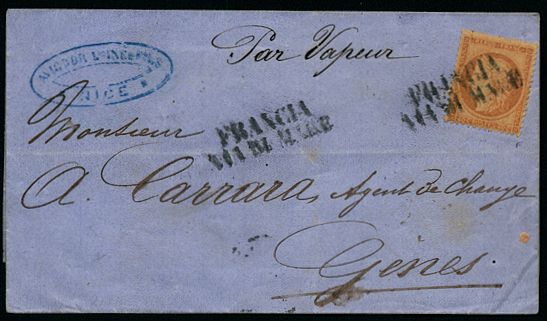 AVIGDOR L'AINÉ & FILS
NICE
Par Vapeur
FRANCIA
VIA DI MARE
FRANCIA
VIA DI MARE
Monsieur
A. Carrara, Agent de Change
Gênes